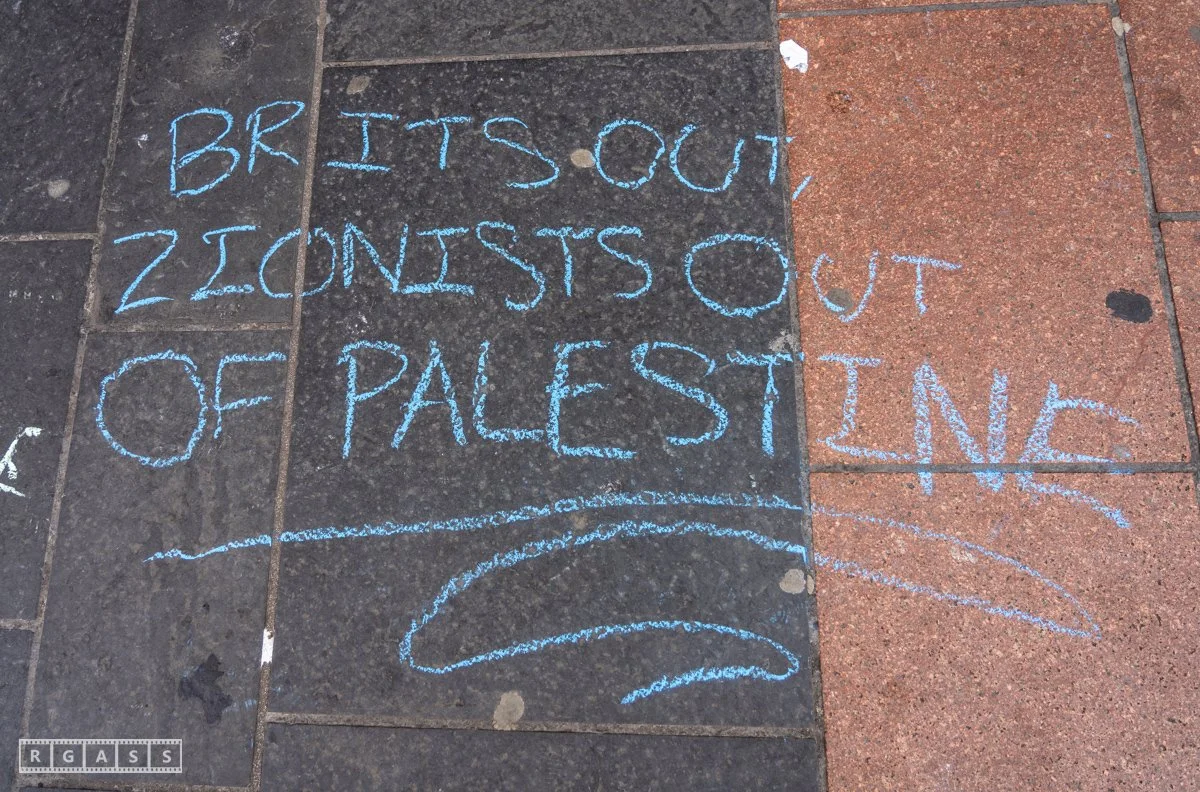 BRITS OUT,
ZIONISTS OUT
OF PALESTINE
RGASS